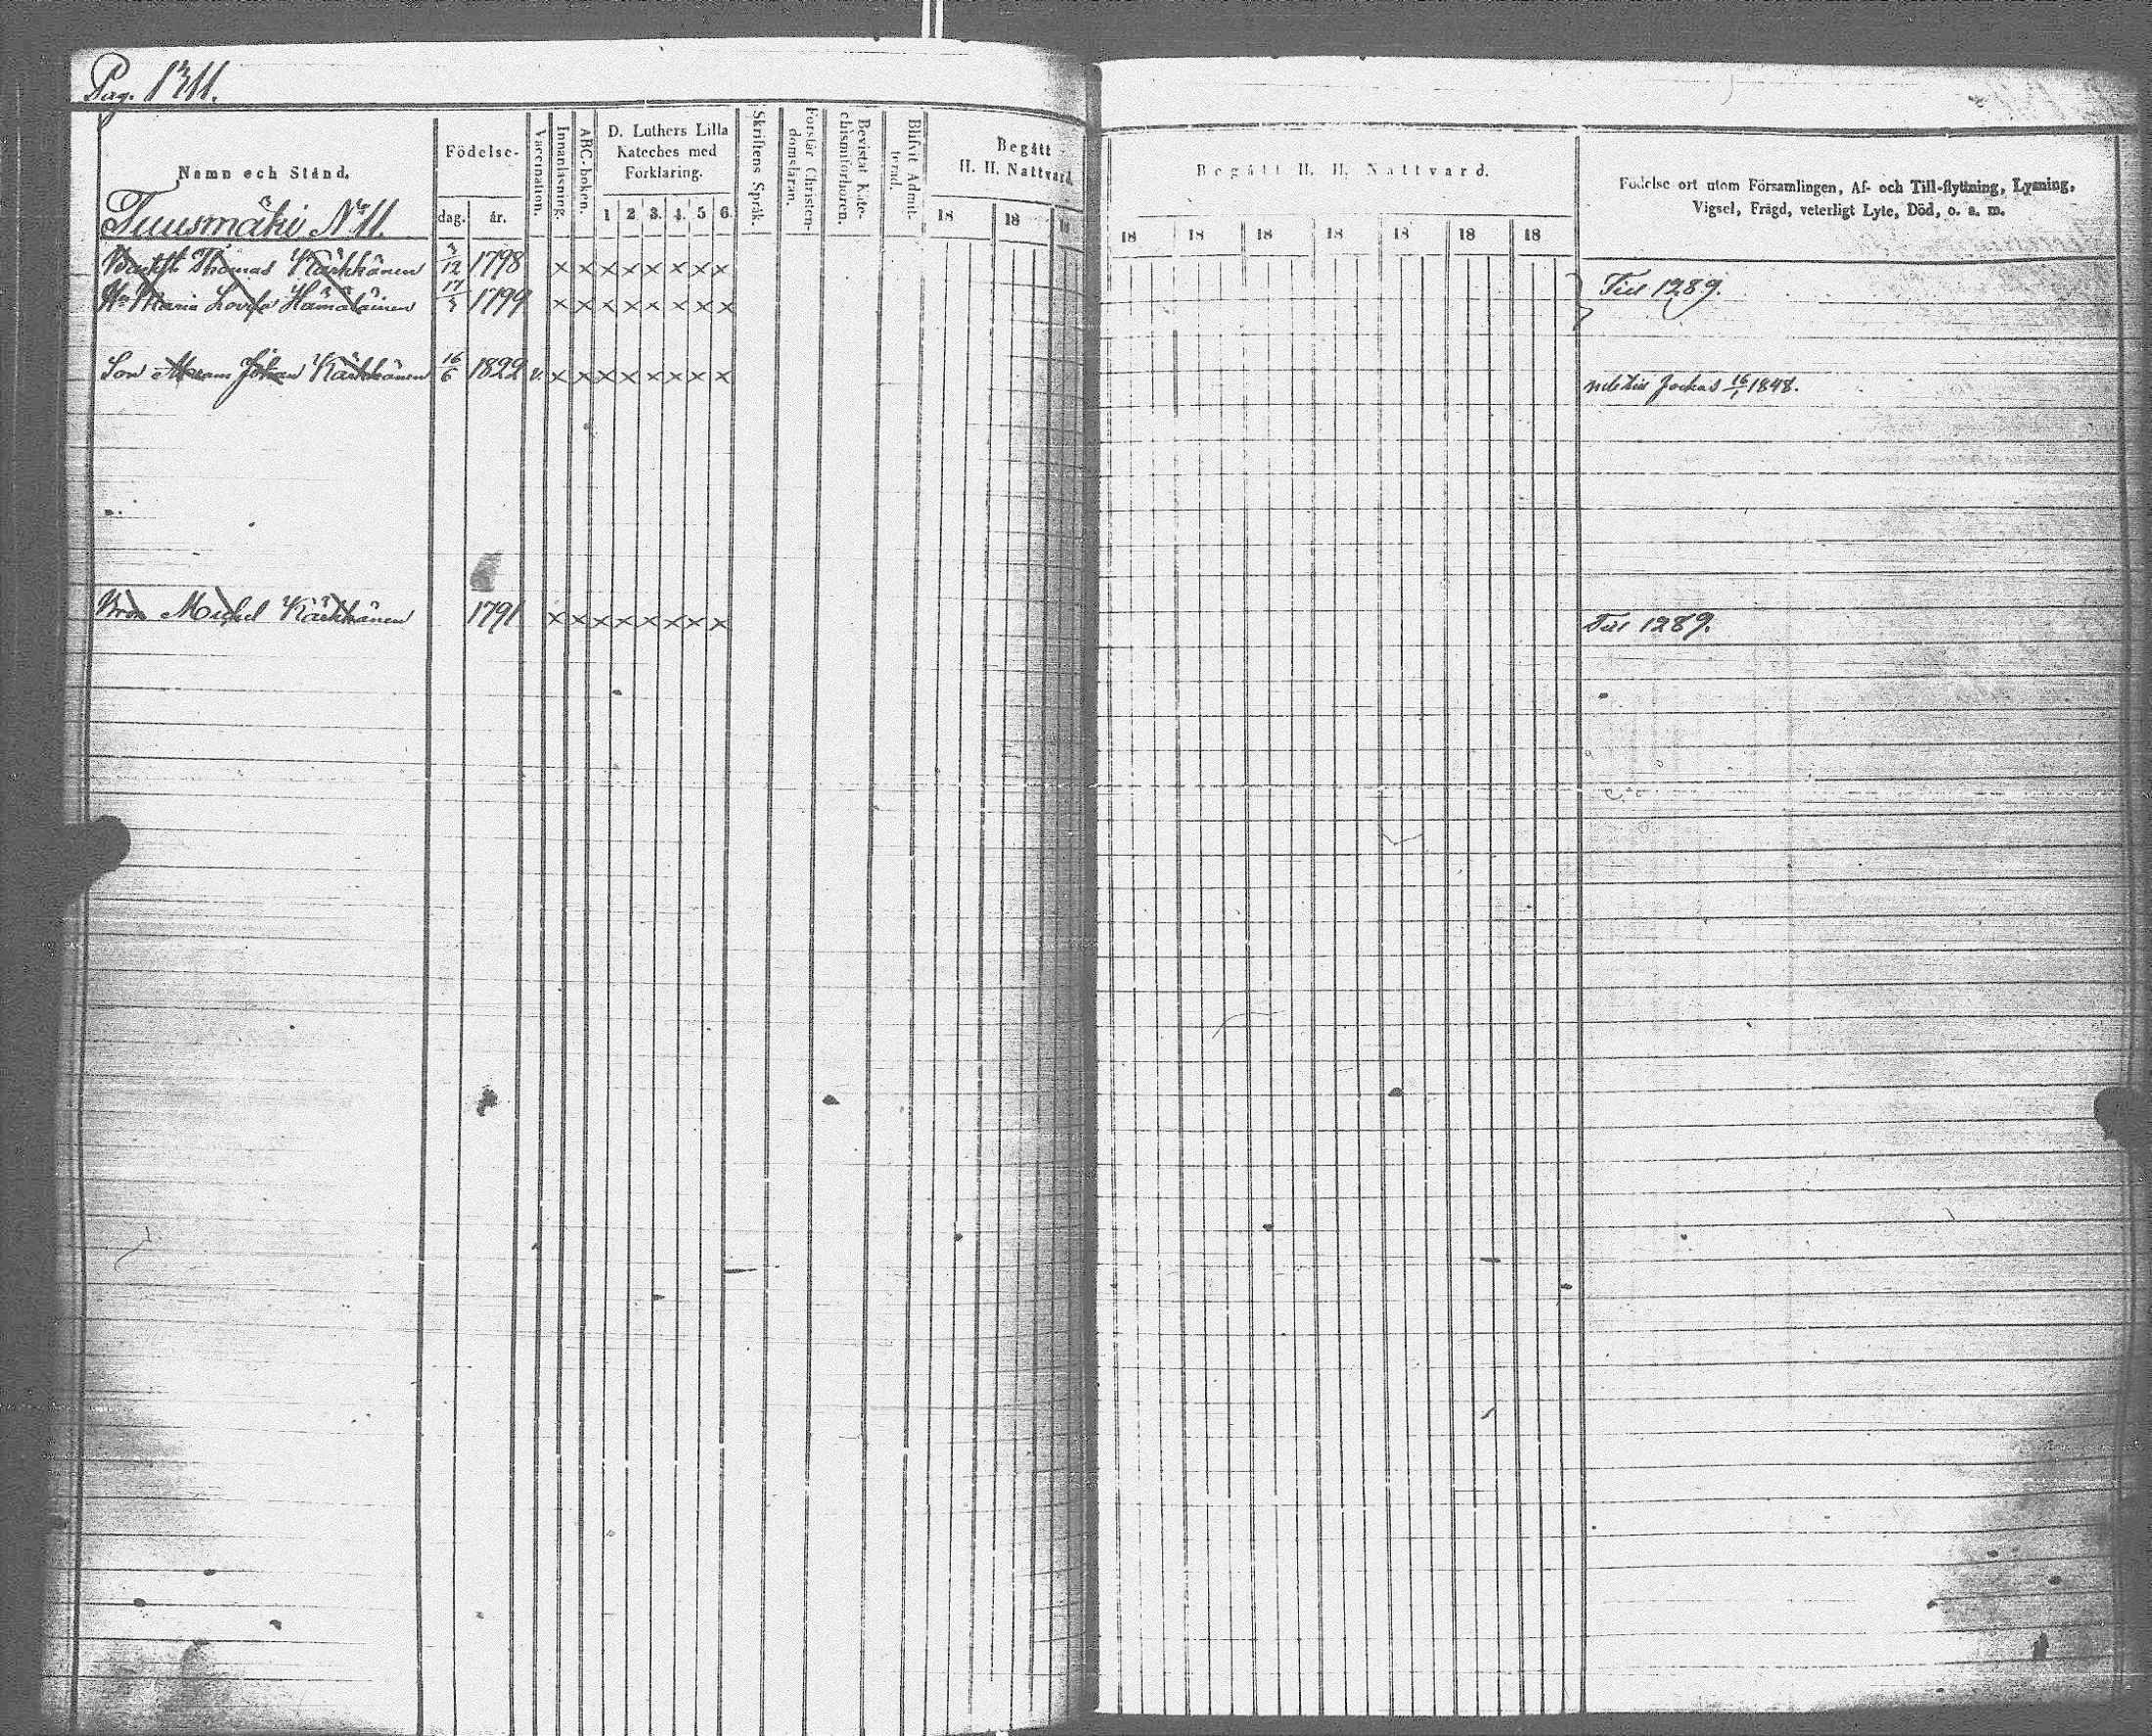 Pag. 1311.
Namn och Stånd.
Födelse-
dag. år.
Vaccination.
Innanläsning.
ABC-boken.
D. Luthers Lilla
Kateches med
Förklaring.
1 2 3. 4. 5 6.
Skriftens Språk.
Förstår Christen-
domsläran.
Bevistat Kate-
chismiförhören.
Blifvit Admit-
terad.
Begått
H. H. Nattvard.
18 18 18
Begått H. H. Nattvard.
18 18 18 18 18 18 18
Födelse ort utom Församlingen, Af- och Till-flyttning, Lysning,
Vigsel, Frägd, veterligt Lyte, Död, o. s. m.
Tuusmäki No 11.
Thomas Kärkkänen 3/12 1798 x x x x x x x x
Maria Lovisa Hämäläinen 17/3 1799 x x x x x x x x
Till 1289.
Son Johan Kärkkänen 16/6 1822 v. x x x x x x x x
Jockas 1848.
Michel Kärkkänen 1791 x x x x x x x x
Till 1289.